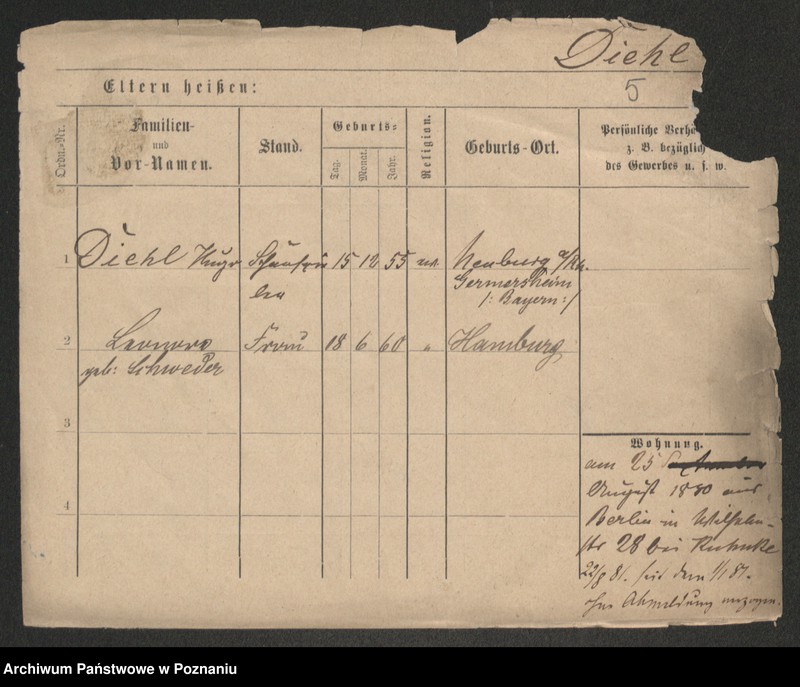 Diehl
5
Eltern heißen:
Ordn.-Nr.
Familien-
und
Vor-Namen.
Stand.
Geburts-
Tag.
Monat.
Jahr.
Religion.
Geburts-Ort.
Persönliche Verhä
z. B. bezüglich
des Gewerbes u. s. w.
1 Diehl Hugo Schauspie 15 12 55 Neuburg a/Rh.
ler Germersheim
/: Bayern :/
2 Leonore Frau 18 6 60 " Hamburg
geb: Schweder
3
4
Wohnung.
am 25
August 1880 aus
Berlin in Wilhelm-
str 28 bei Kuhnke
22/8 81. seit dem 1/1 81.
ohne Abmeldung
Archiwum Państwowe w Poznaniu